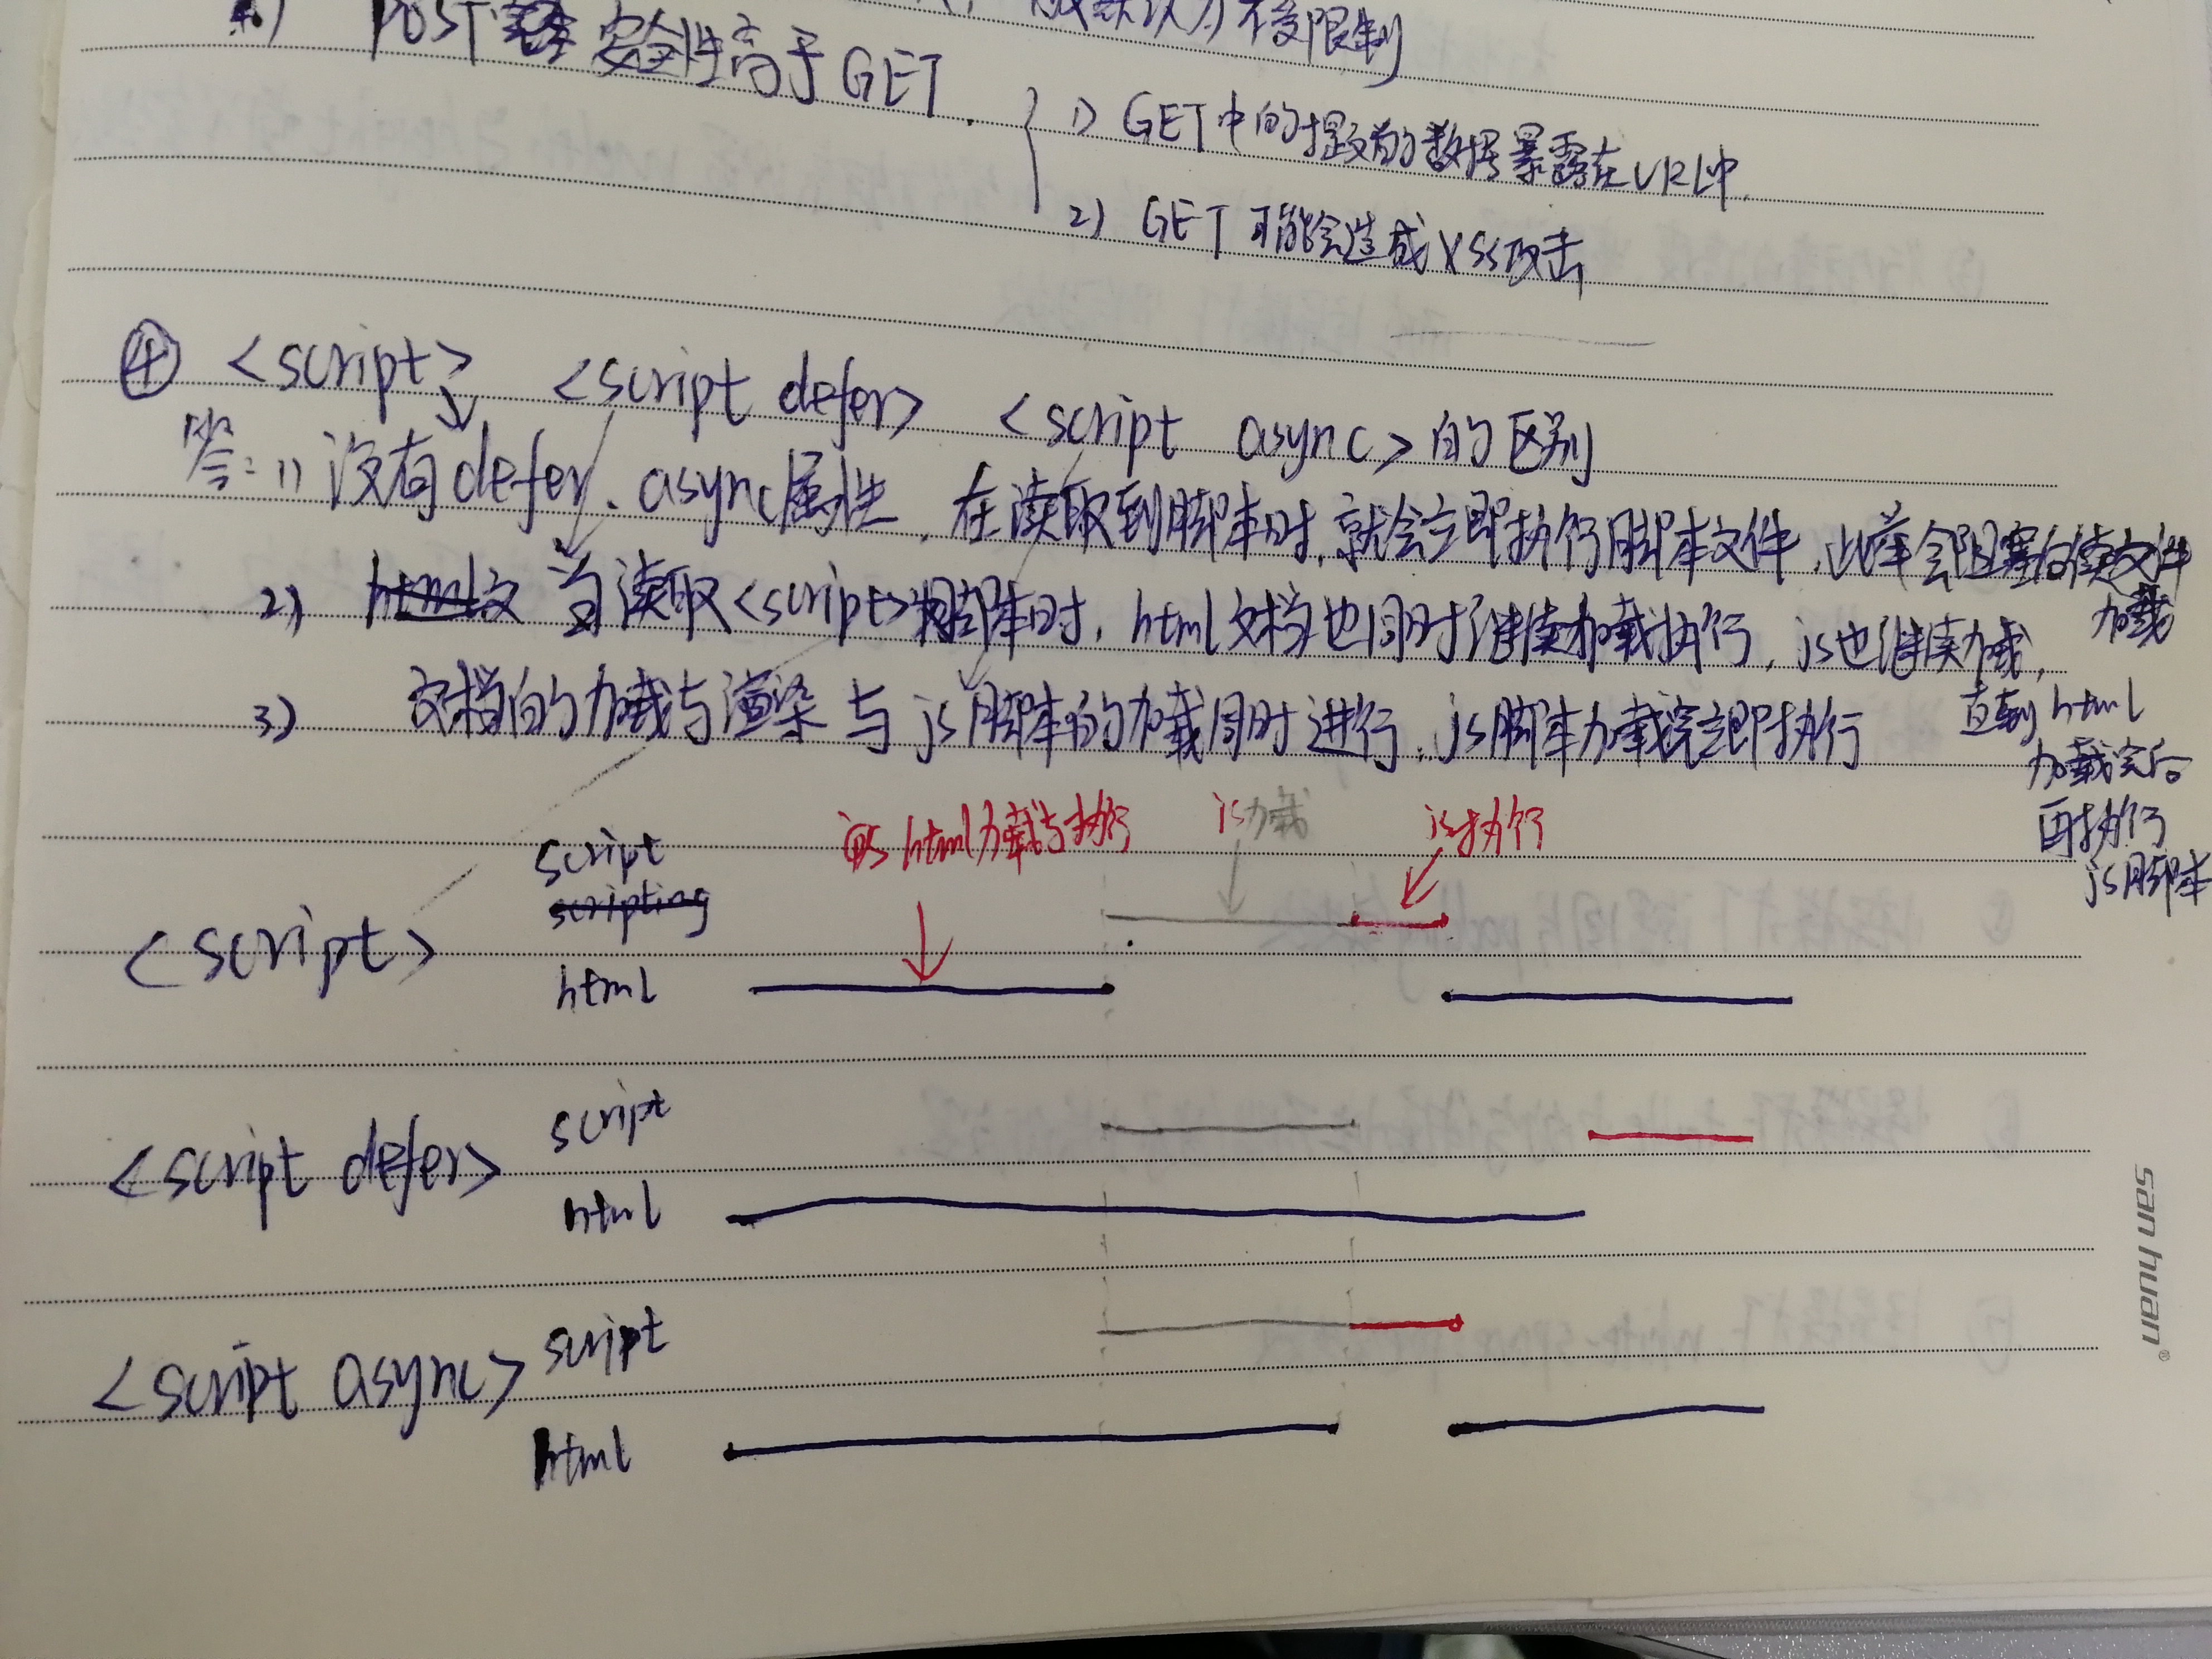 不受限制
POST 安全性高于GET.
1) GET中的提交的数据暴露在URL中.
2) GET可能会造成XSS攻击
④ <script> <script defer> <script async>的区别
答:1) 没有defer、async属性,在读取到脚本时,就会立即执行脚本文件,此举会阻塞后续文件
加载
2) html文 当读取<script>脚本时,html文档也同时继续加载执行,js也继续加载,
直到html
加载完后
再执行
js脚本
3) 文档的加载与渲染与js脚本的加载同时进行,js脚本加载完立即执行
html加载与执行 js加载 js执行
script
scripting
<script>
html
script
<script defer>
html
script
<script async>
html
san huan®